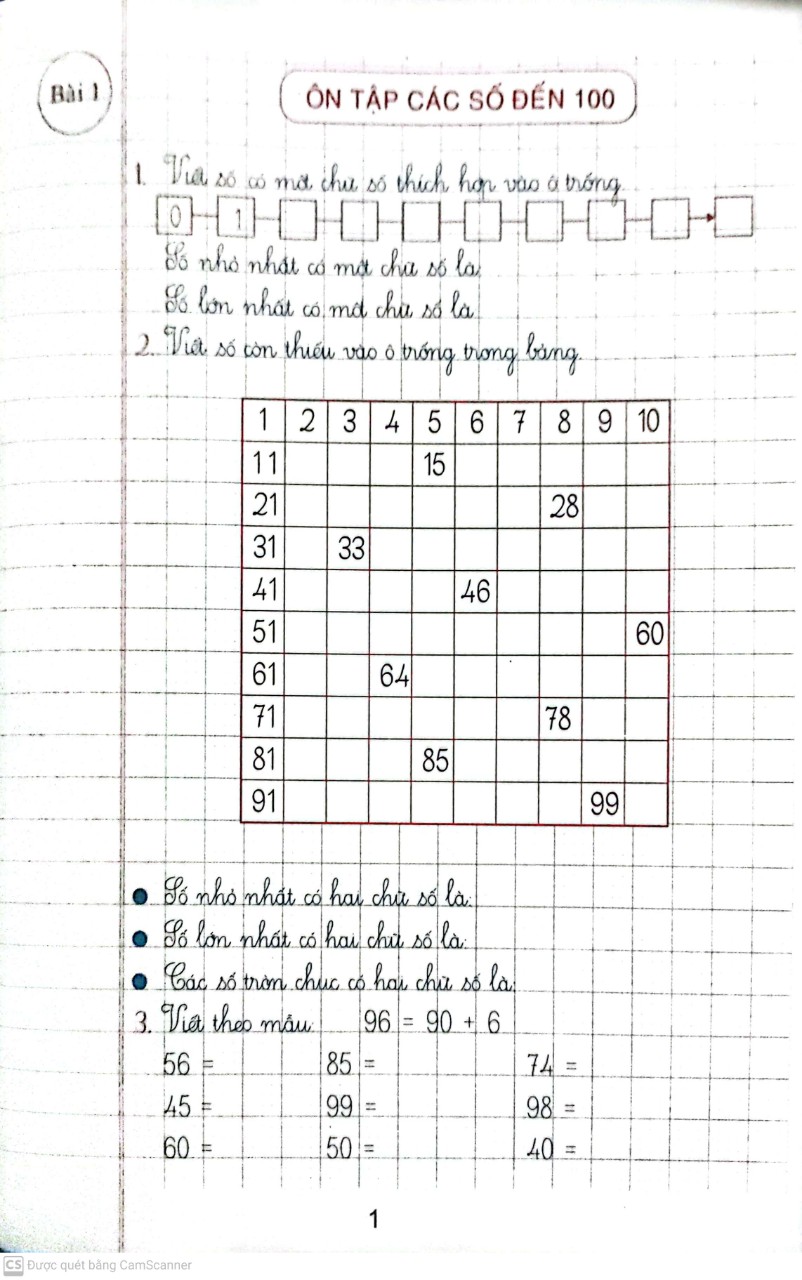 Bài 1
ÔN TẬP CÁC SỐ ĐẾN 100
1. Viết số có một chữ số thích hợp vào ô trống.
0 1
Số nhỏ nhất có một chữ số là:
Số lớn nhất có một chữ số là:
2. Viết số còn thiếu vào ô trống trong bảng.
1 2 3 4 5 6 7 8 9 10
11 15
21 28
31 33
41 46
51 60
61 64
71 78
81 85
91 99
Số nhỏ nhất có hai chữ số là:
Số lớn nhất có hai chữ số là:
Các số tròn chục có hai chữ số là:
3. Viết theo mẫu: 96 = 90 + 6
56 = 85 = 74 =
45 = 99 = 98 =
60 = 50 = 40 =
1
CS Được quét bằng CamScanner